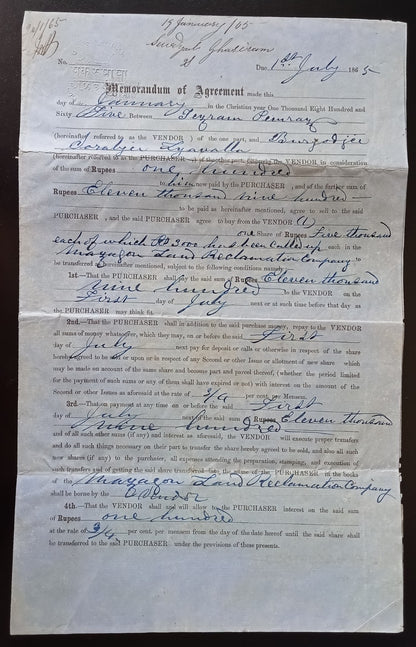 19 January /65
No. Due 1st July 1865
Memorandum of Agreement made this
day of January in the Christian year One Thousand Eight Hundred and
Sixty Five Between
(hereinafter referred to as the VENDOR) of the one part, and
(hereinafter referred to as the PURCHASER) of the other part, the VENDOR in consideration
of the sum of Rupees one hundred
to him now paid by the PURCHASER, and of the further sum of
Rupees Eleven thousand nine hundred
to be paid as hereinafter mentioned, agree to sell to the said
PURCHASER, and the said PURCHASER agree to buy from the VENDOR (1)
one Share of Rupees Five thousand
each of which Rs 3000 has been called up each in the
Mazagon Land Reclamation Company
to be transferred as hereinafter mentioned, subject to the following conditions namely:
1st.—That the PURCHASER shall pay the said sum of Rupees Eleven thousand
nine hundred to the VENDOR on the
First day of July next or at such time before that day as
the PURCHASER may think fit.
2nd.—That the PURCHASER shall in addition to the said purchase money, repay to the VENDOR
all sums of money whatsoever, which they may, on or before the said First
day of July next pay for deposit or calls or otherwise in respect of the share
hereby agreed to be sold or upon or in respect of any Second or other Issue or allotment of new share which
may be made on account of the same share and become part and parcel thereof, (whether the period limited
for the payment of such sums or any of them shall have expired or not) with interest on the amount of the
Second or other Issues as aforesaid at the rate of per cent. per Mensem.
3rd.—That on payment at any time on or before the said First
day of July next of the said sum of Rupees Eleven thousand
nine hundred
and of all such other sums (if any) and interest as aforesaid, the VENDOR will execute proper transfers
and do all such things necessary on their part to transfer the share hereby agreed to be sold, and also all such
new shares (if any) to the purchaser, all expenses attending the preparation, stamping, and execution of
such transfers and of getting the said share transferred into the name of the PURCHASER in the books
of the Mazagon Land Reclamation Company
shall be borne by the Vendor
4th.—That the VENDOR shall and will allow to the PURCHASER interest on the said sum
of Rupees one hundred
at the rate of 3/4 per cent. per mensem from the day of the date hereof until the said share shall
be transferred to the said PURCHASER under the provisions of these presents.